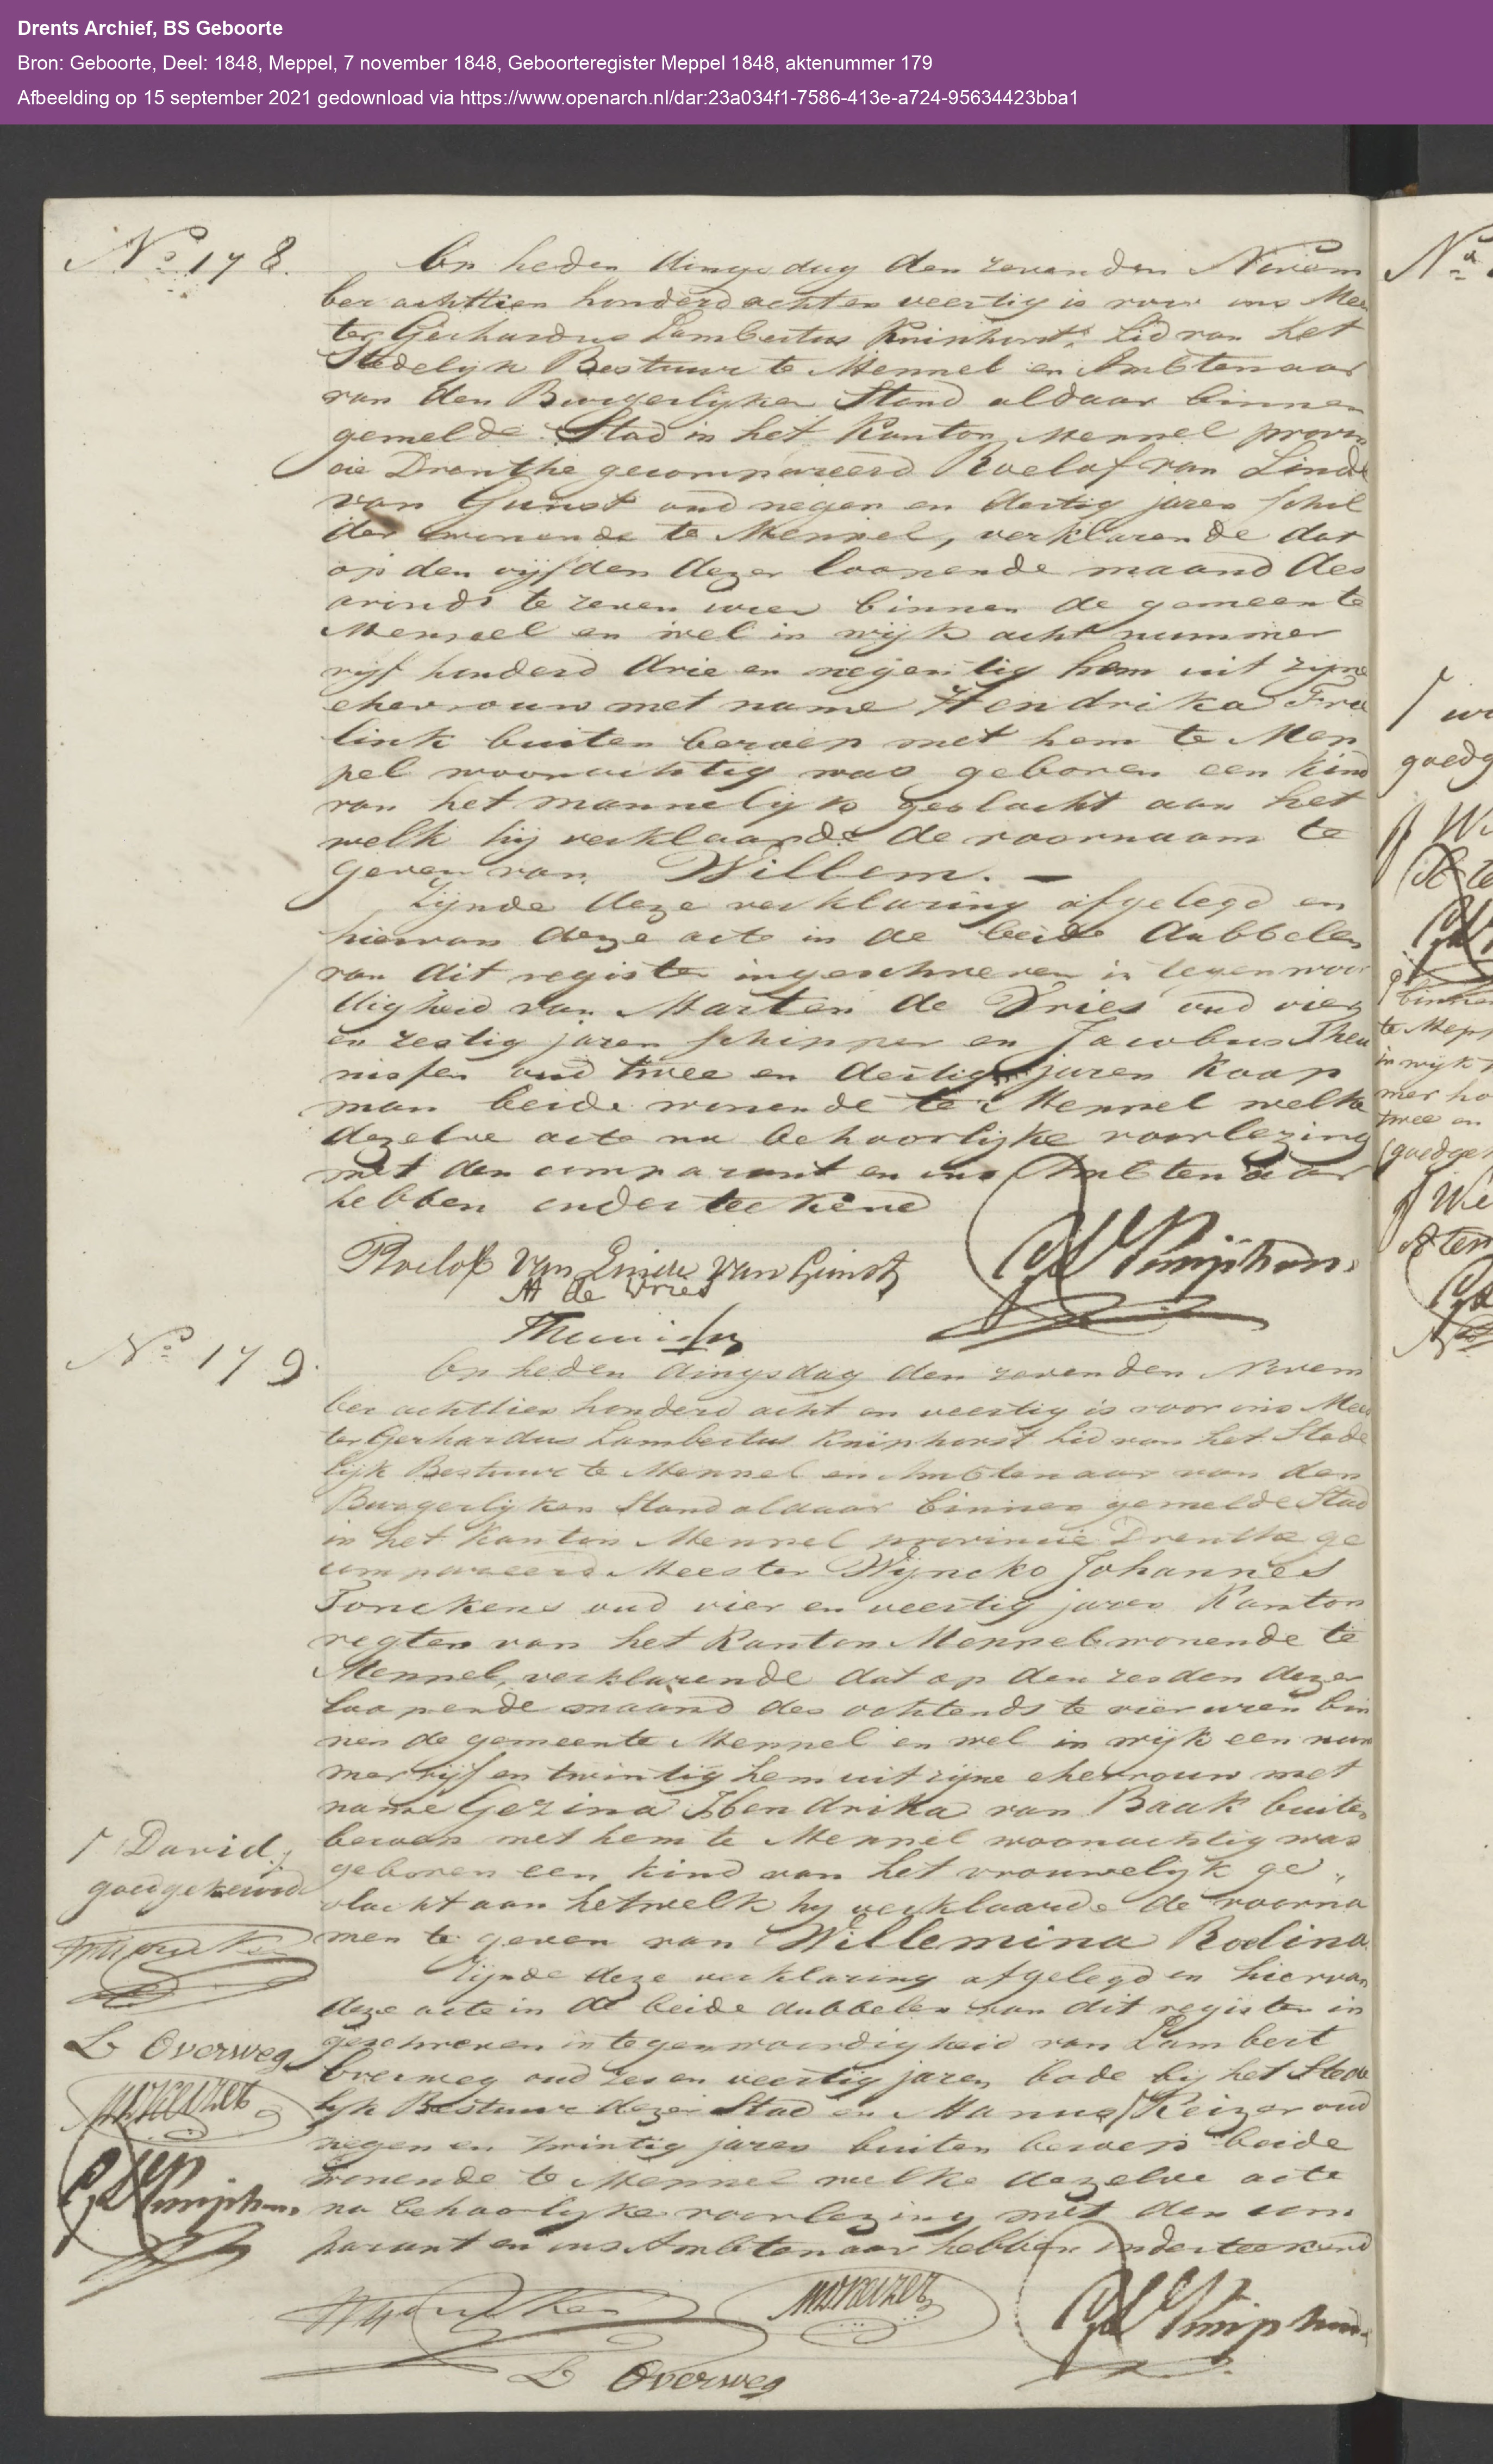 Drents Archief, BS Geboorte
Bron: Geboorte, Deel: 1848, Meppel, 7 november 1848, Geboorteregister Meppel 1848, aktenummer 179
Afbeelding op 15 september 2021 gedownload via https://www.openarch.nl/dar:23a034f1-7586-413e-a724-95634423bba1
No 178.
Op heden dingsdag den zevenden Novem
ber achttien honderd acht en veertig is voor ons Mees
ter Gerhardus Lambertus Kniphorst Lid van het
Stedelijk Bestuur te Meppel en Ambtenaar
van den Burgerlijken Stand aldaar binnen
gemelde Stad in het Kanton Meppel provin
cie Drenthe gecompareerd Roelof van Linde
van Gunst oud negen en dertig jaren schil
der wonende te Meppel, verklarende dat
op den vijfden dezer loopende maand des
avonds te zeven uren binnen de gemeente
Meppel en wel in wijk acht nummer
vijf honderd drie en negentig hem uit zijne
ehevrouw met name Hendrika Fre
link buiten beroep met hem te Mep
pel woonachtig was geboren een kind
van het mannelijk geslacht aan het
welk hij verklaarde de voornaam te
geven van Willem. —
Zijnde deze verklaring afgelegd en
hiervan deze acte in de beide dubbelen
van dit register ingeschreven in tegenwoor
digheid van Marten de Vries oud vier
en zestig jaren schipper en Jacobus Theu
nissen oud twee en dertig jaren Koop
man beide wonende te Meppel welke
dezelve acte na behoorlijke voorlezing
met den comparant en ons Ambtenaar
hebben onderteekend
Roelof van Linde van Gunst
M de Vries
Theunissen
GL Kniphorst
No 179.
Op heden dingsdag den zevenden Novem
ber achttien honderd acht en veertig is voor ons Mees
ter Gerhardus Lambertus Kniphorst Lid van het Stede
lijk Bestuur te Meppel en Ambtenaar van den
Burgerlijken Stand aldaar binnen gemelde Stad
in het Kanton Meppel provincie Drenthe ge
compareerd Meester Wijncko Johannes
Tonckens oud vier en veertig jaren Kanton
regter van het Kanton Meppel wonende te
Meppel, verklarende dat op den zesden dezer
loopende maand des ochtends te vier uren bin
nen de gemeente Meppel en wel in wijk een num
mer vijf en twintig hem uit zijne ehevrouw met
name Gezina Hendrika van Baak buiten
beroep met hem te Meppel woonachtig was
geboren een kind van het vrouwelijk ge„
slacht aan hetwelk hij verklaarde de voorna
men te geven van Willemina Rodina
Zijnde deze verklaring afgelegd en hiervan
deze acte in de beide dubbelen van dit register in
geschreven in tegenwoordigheid van Lambert
Overweg oud zes en veertig jaren bode bij het Stede
lijk Bestuur dezer Stad en Manus / Keizer oud
negen en twintig jaren buiten beroep beide
wonende te Meppel welke dezelve acte
na behoorlijke voorlezing met den com
parant en ons Ambtenaar hebben onderteekend
/ David,
goedgekeurd
L Overweg
MDKeizer
GL Kniphorst
MDKeizer
GL Kniphorst
L Overweg
No
goedg
binnen
te Mepp
in wijk
mer ho
twee en